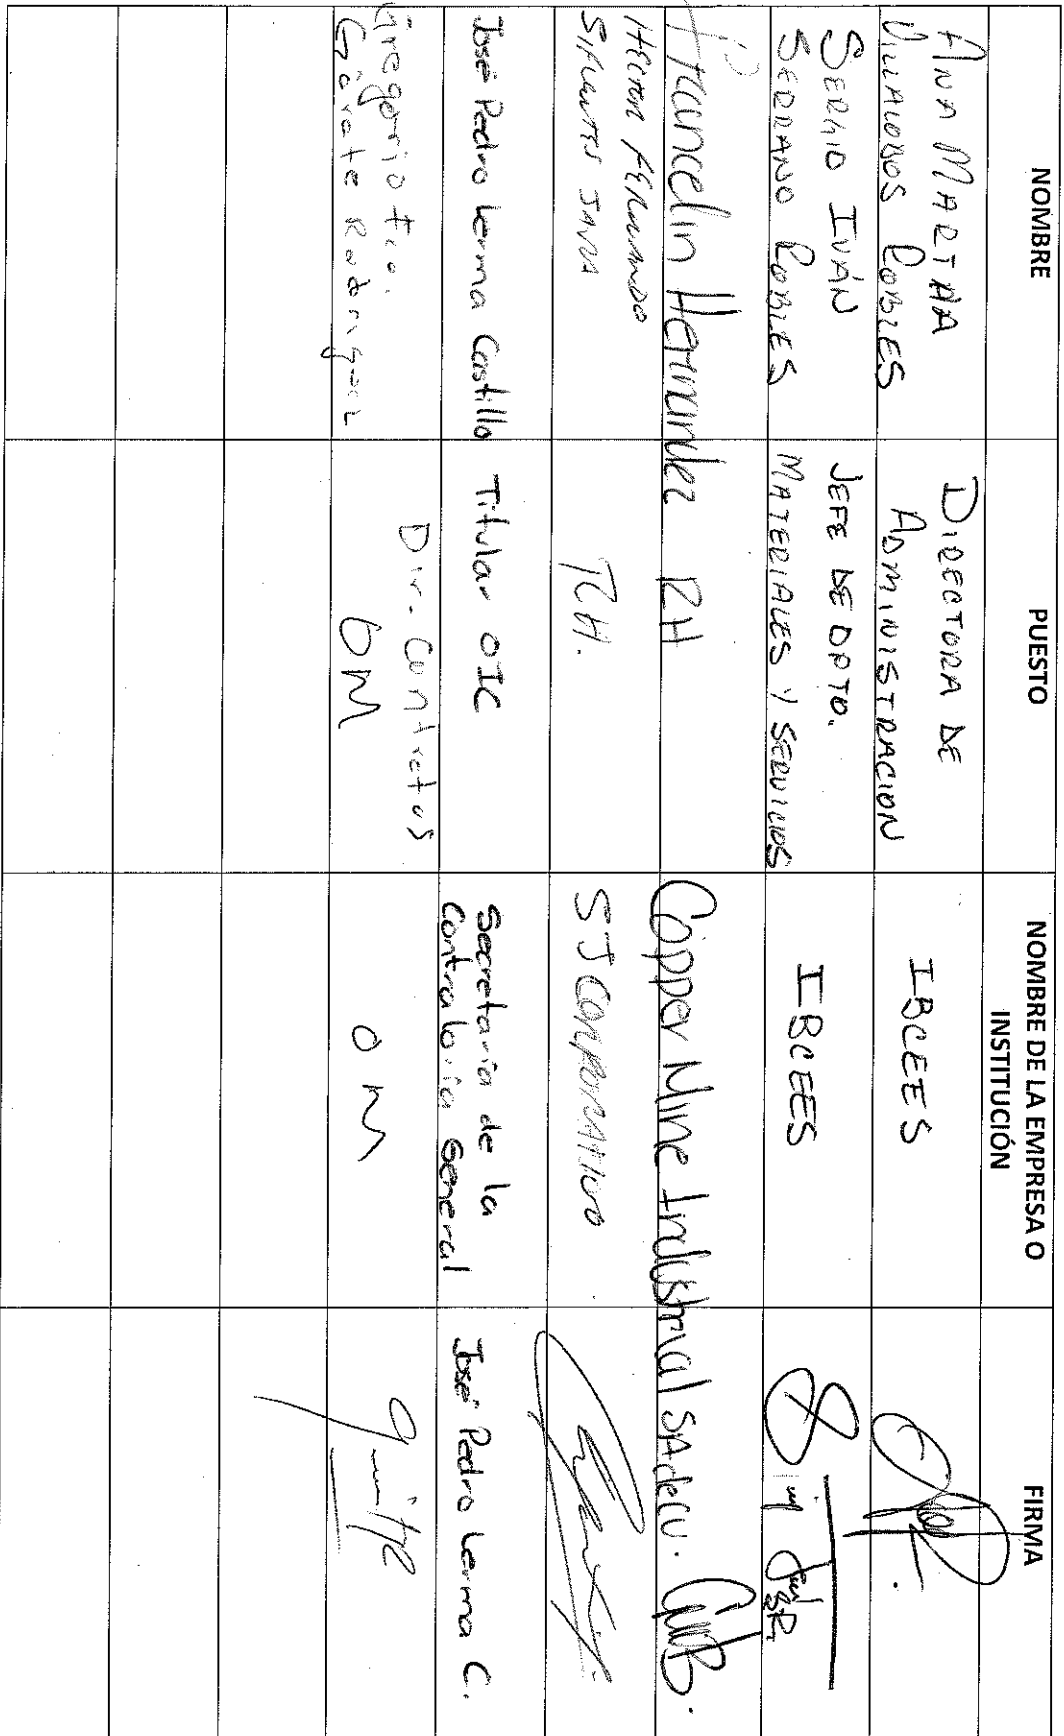 NOMBRE
PUESTO
NOMBRE DE LA EMPRESA O
INSTITUCIÓN
FIRMA
ANA MARTHA
VILLALOBOS ROBLES
DIRECTORA DE
ADMINISTRACION
IBCEES
SERGIO IVÁN
SERRANO ROBLES
JEFE DE DPTO.
MATERIALES Y SERVICIOS
IBCEES
Francelin Hernandez
RH
Copper Mine Industrial SA de CV.
HECTOR FERNANDO
SIFUENTES
RH.
SJ CORPORATIVO
José Pedro Lerma Castillo
Titular OIC
Secretaria de la
Contraloría General
José Pedro Lerma C.
Gregorio Fco.
Gárate Rodríguez
Dir. Contratos
OM
OM